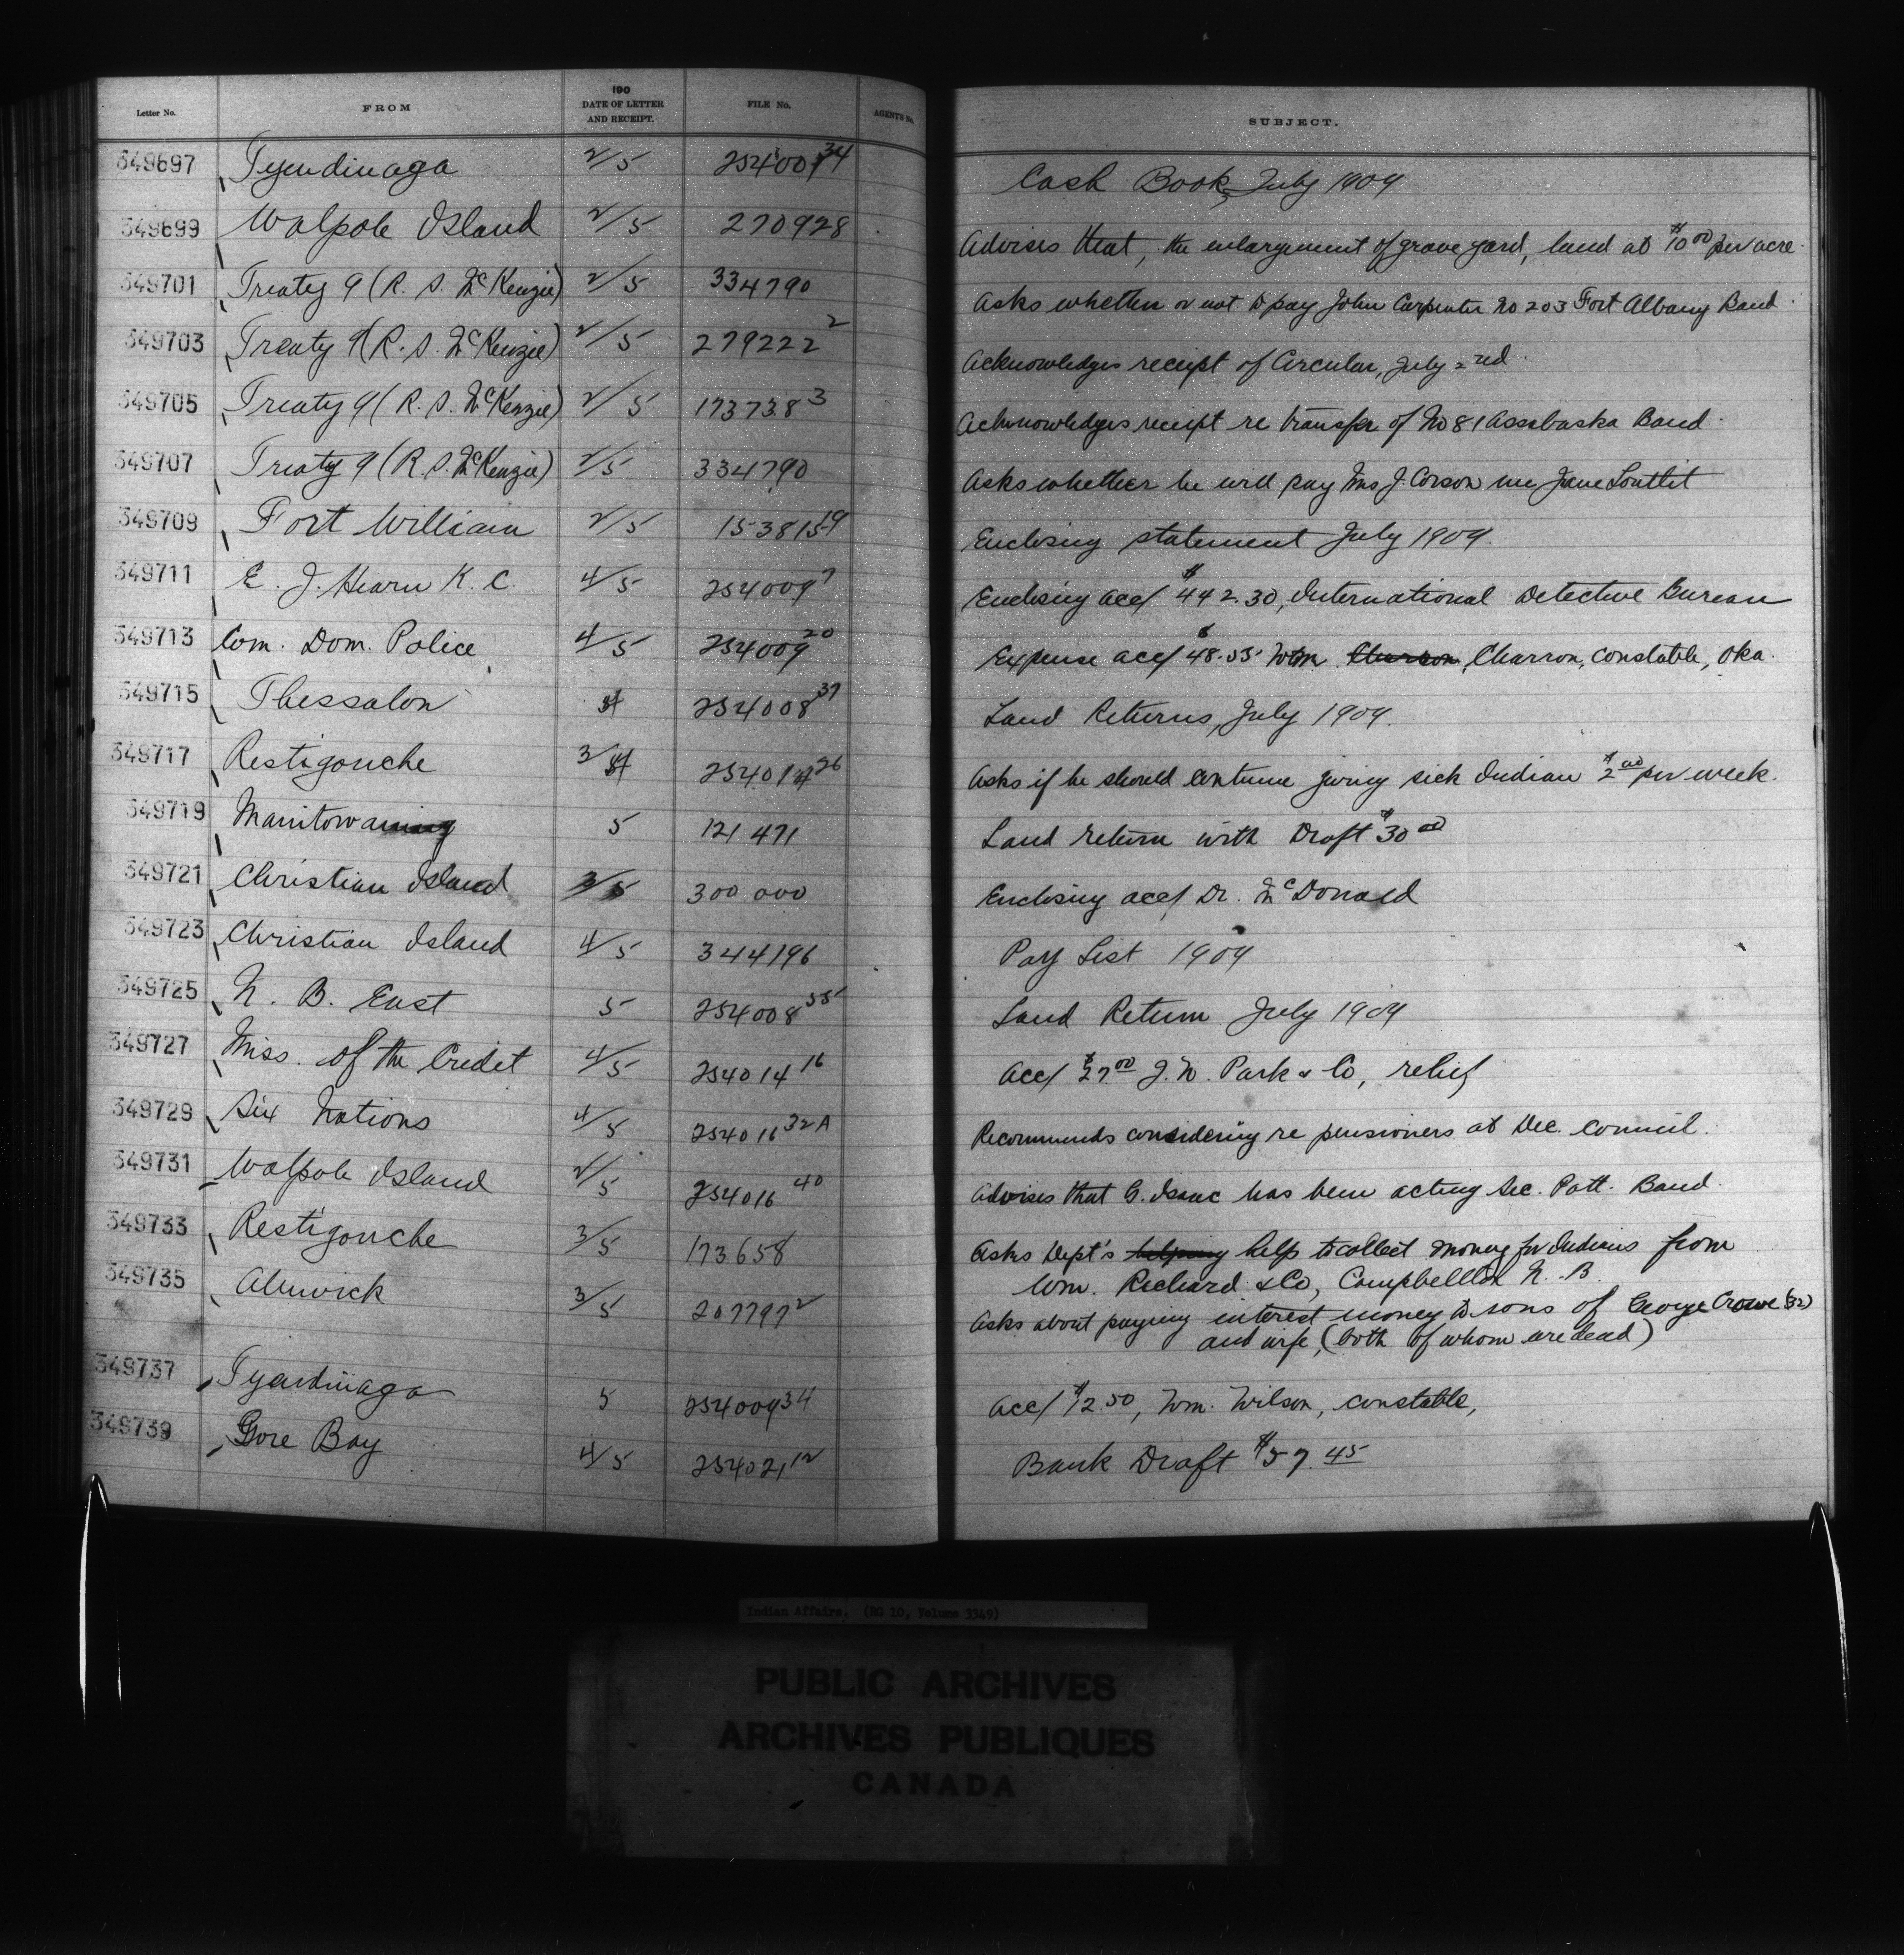 Letter No. FROM 190 DATE OF LETTER AND RECEIPT. FILE No. AGENT'S No. SUBJECT.
349697 Tyendinaga 2/5 254009 34 Cash Book, July 1909
349699 Walpole Island 2/5 270928 Advises that, the enlargement of grave yard, land at $10 00 per acre.
349701 Treaty 9 (R. S. McKenzie) 2/5 334790 Asks whether or not to pay John Carpenter No 203 Fort Albany Band.
349703 Treaty 9 (R. S. McKenzie) 2/5 279222 2 Acknowledges receipt of Circular, July 2nd.
349705 Treaty 9 (R. S. McKenzie) 2/5 173738 3 Acknowledges receipt re transfer of No 81 Assabaska Band.
349707 Treaty 9 (R. S. McKenzie) 2/5 334790 Asks whether he will pay Mrs J. Corson nee Jane Louttit
349709 Fort William 2/5 153815 19 Enclosing statement July 1909.
349711 E. J. Hearn K. C. 4/5 254009 7 Enclosing acc/ $442.30, International Detective Bureau
349713 Com. Dom. Police 4/5 254009 20 Expense acc/ $48.55 Wm Charron, Charron, Constable, Oka.
349715 Thessalon 254008 37 Land Returns, July 1909.
349717 Restigouche 3/ 25401 26 Asks if he should continue giving sick Indian $2 00 per week.
349719 Manitowaning 5 121471 Land return with Draft $30 00
349721 Christian Island 3/5 300 000 Enclosing acc/ Dr. McDonald
349723 Christian Island 4/5 344196 Pay List 1909
349725 N. B. East 5 254008 55 Land Return July 1909
349727 Miss. of the Credit 4/5 254014 16 Acc/ $27.00 J. N. Park & Co, relief
349729 Six Nations 4/5 254016 32A Recommends considering re pensioners at Dec. Council.
349731 Walpole Island 2/5 254016 40 Advises that C. Isaac has been acting Sec. Pott. Band.
349733 Restigouche 3/5 173658 Asks Dept's helping help to collect money for Indians from
Wm. Richard & Co, Campbellton N. B.
349735 Alnwick 3/5 207797 2 Asks about paying interest money to sons of George Crowe (32)
and wife, (both of whom are dead)
349737 Tyendinaga 5 254009 34 Acc/ $2.50, Wm. Wilson, constable,
349739 Gore Bay 4/5 254021 12 Bank Draft $57.45
Indian Affairs. (RG 10, Volume 3349)
PUBLIC ARCHIVES
ARCHIVES PUBLIQUES
CANADA